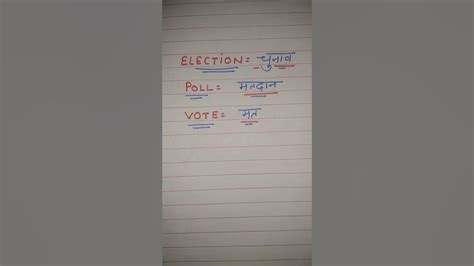 ELECTION = चुनाव
POLL = मतदान
VOTE = मत